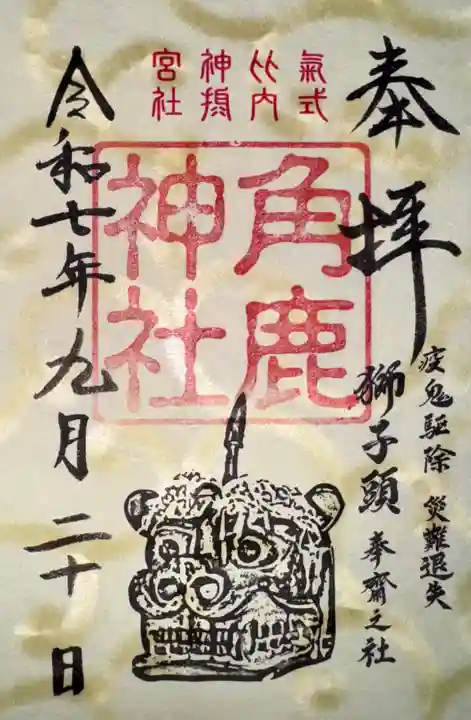 奉拝
疫鬼駆除 災難退失
獅子頭 奉齋之社
氣式
比内
神摂
宮社
角鹿
神社
令和七年九月二十日